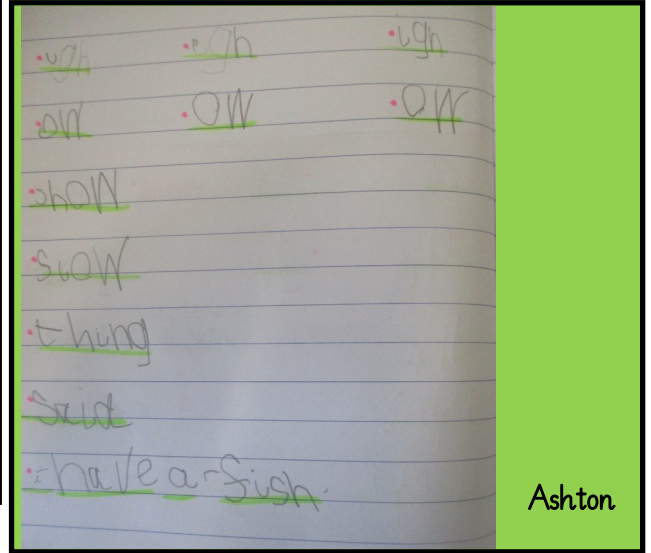 igh igh igh
ow ow ow
show
slow
thing
said
I have a fish.
Ashton